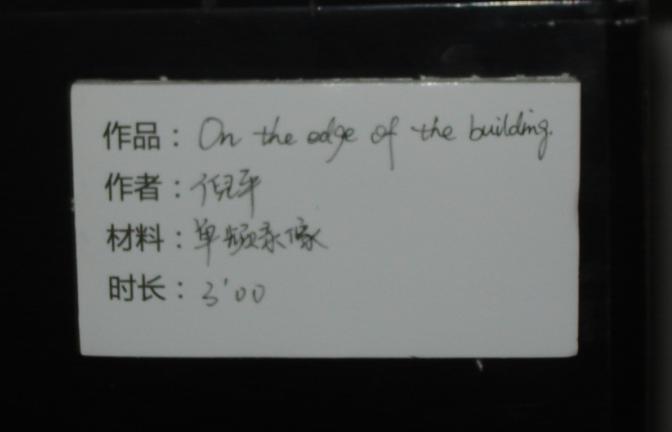 作品：On the edge of the building.
作者：倪平
材料：单频录像
时长：3'00